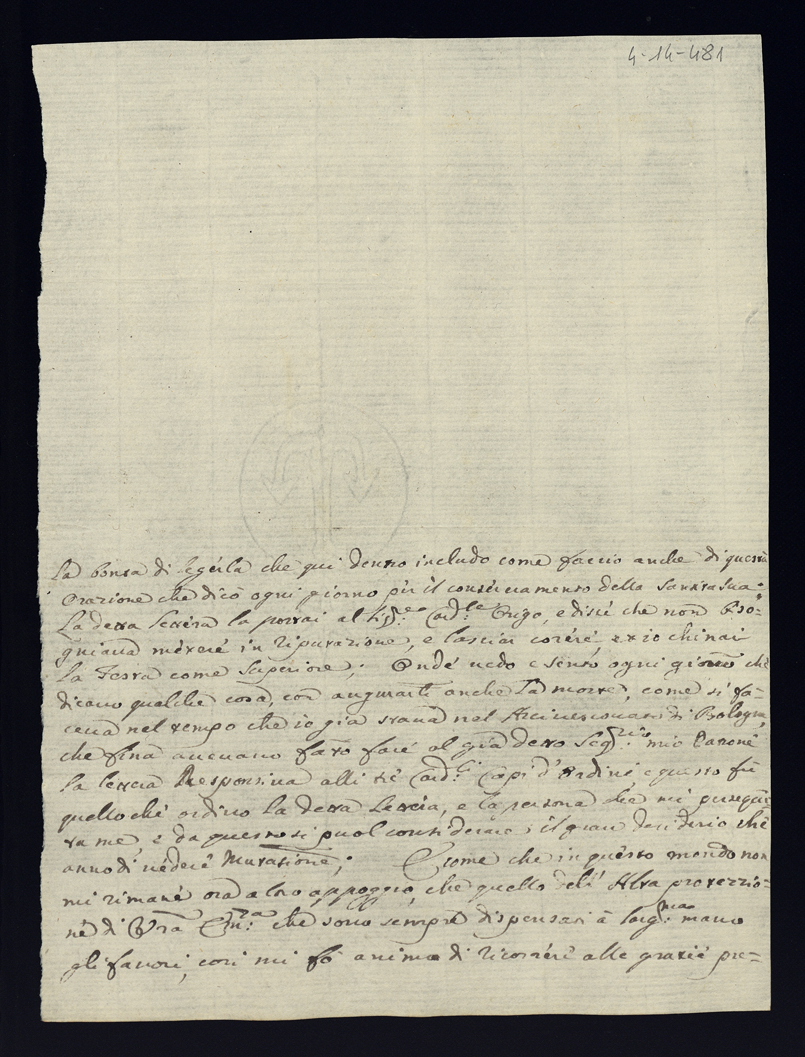 4-14-481
la bontà di legerla che qui dentro includo come faccio anche di questa
Orazione che dico ogni giorno pir il conservamento della Santità Sua:
La detta lettera la portai al Sig:re Card:le Origo, e disse che non biso=
gniava metere in riputazione, e lasciar corere, et io chinai
la Testa come Superiore; Onde vedo e sento ogni giorno che
dicano qualche cosa, con augurarti anche la morte, come si fa=
ceva nel tempo che io già stava nel Arcivescovato di Bologna,
che fina avevano fatto fare al già detto Seg:rio mio Patrone
la lettera Responsiva alli tre Card:li Capi d'Ordine, e questo fù
quello che ordino la detta Lettera, e la persona che mi perseguita
va me, e da questo si puol considerare il gran desiderio che
anno di vedere Mutatione; E come che in questo mondo non
mi rimane ora altro appoggio, che quello dell' Alta protezzio=
ne di Vra Em:za che sono sempre dispensati à larg:ma mano
gli favori, cosi mi fò animo di ricorrere alle grazie pre=